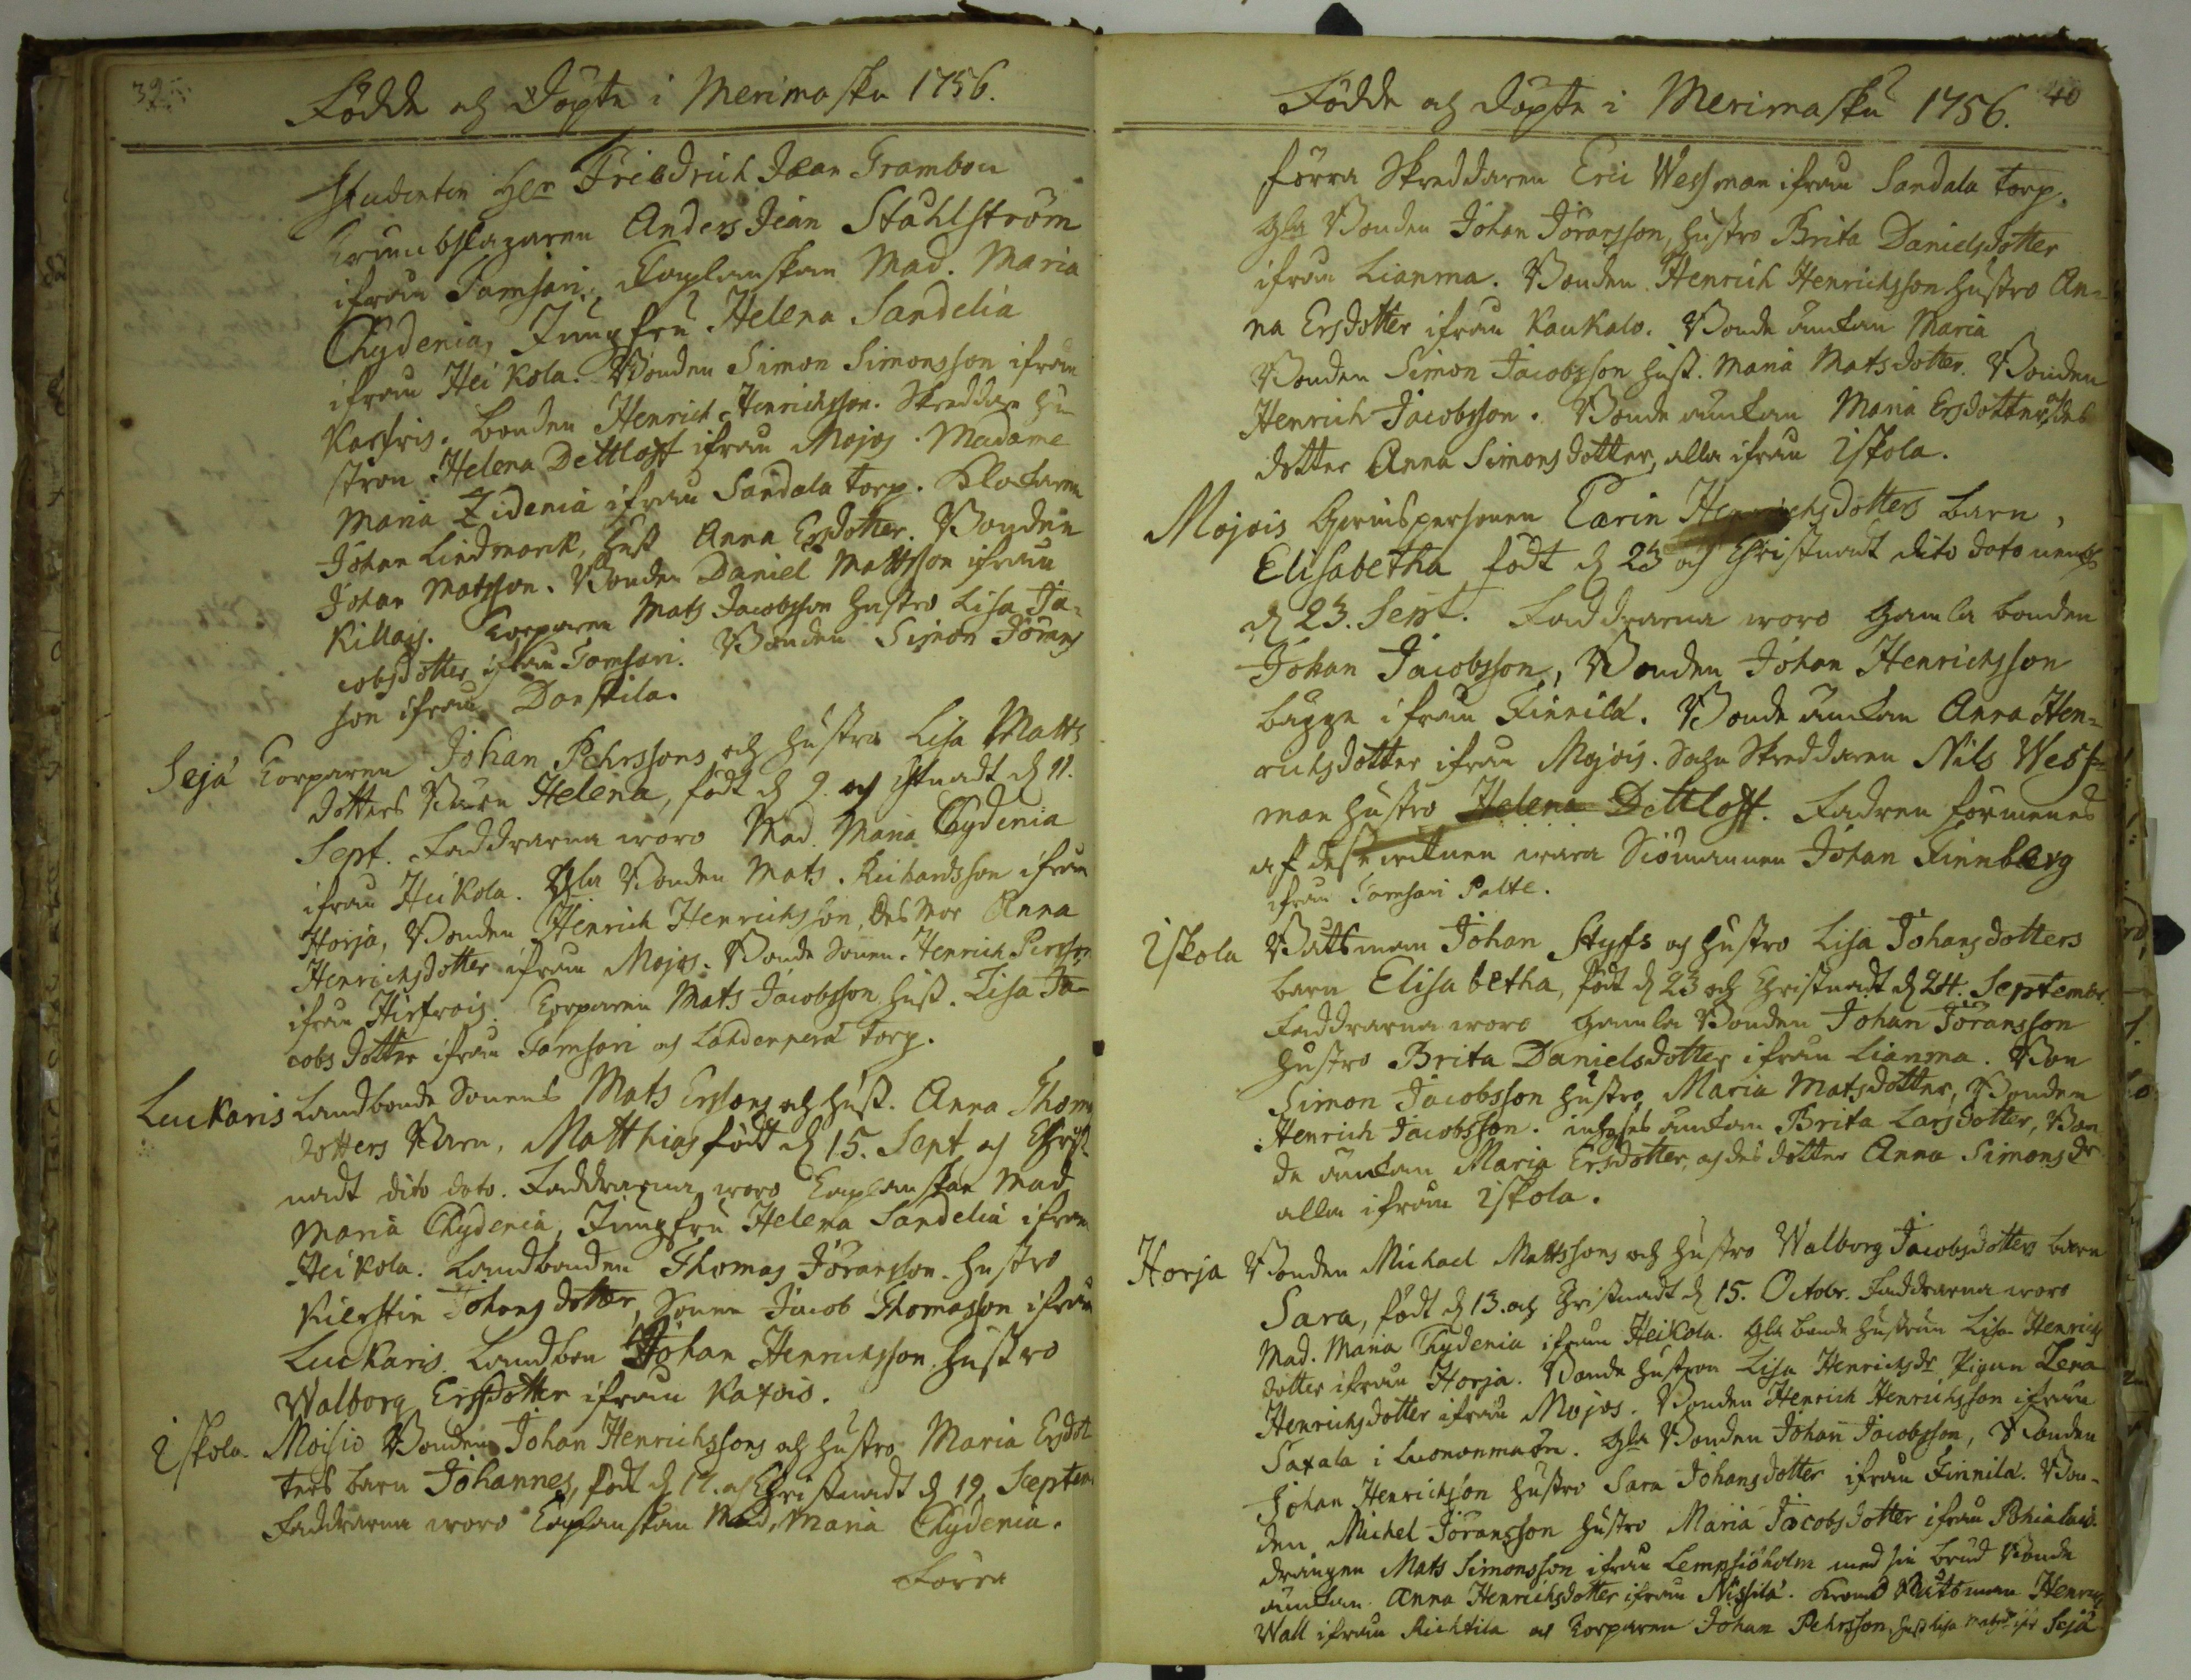 39
Födde och Döpte i Merimasku 1756.
Studenten Her Friedrich Jean Grambou
Trumbslagaren Anders Jean Ståhlström
ifrån Tamsari. Caplanskan Mad. Maria
Chydenia, Jungfru Helena Sandelia
ifrån Heikola. Bonden Simon Simonsson ifrån
Karfris. Bonden Henrich Henrichsson. Skreddare hu
stron Helena Dettloff ifrån Mojos. Madame
Maria Zidenia ifrån Sandala torp. Klockaren
Johan Lindmarck, Hust Anna Ersdotter. Bonden
Johan Matsson. Bonden Daniel Mattsson ifrån
Killais. Torparen Mats Jacobsson hustro Lisa Ja-
cobsdotter ifrån Tamsari. Bonden Simon Jörans
son ifrån Danskila.
Seja Torparen Johan Pehrssons och hustro Lisa Matts
dotters Barn Helena, födt d 9. och Chrisnadt d 11.
Sept. Faddrarna woro Mad. Maria Chydenia
ifrån Heikola. Gla Bonden Mats Richardsson ifrån
Horja, Bonden Henrich Henrichsson, des mor Anna
Henrichsdotter ifrån Mojos. Bonde Sonen Henrich Persson
ifrån Hirfrois. Torparen Mats Jacobsson Hust. Lisa Ja-
cobs dotter ifrån Tamsari och Lahdenperä torp.
Luckaris Landbonde Sonens Mats Ersons och hust. Anna Thoms
dotters Barn, Matthias födt d 15. Sept och Christ
nadt dito dato. Faddrarna woro Caplanskan Mad.
Maria Chydenia, Jungfru Helena Sandelia ifrån
Heikola. Landbonden Thomas Jöransson hustro
Kierstin Johansdotter, Sonen Jacob Thomasson ifrån
Luckaris. Landbon Johan Henrichsson hustro
Walborg Ersdotter ifrån Katois.
Iskola. Moisio Bonden Johan Henrichssons och hustro Maria Ersdot
ters barn Johannes, födt d 17. och Christnadt d 19. Septem
Faddrarna woro Caplanskan Mad. Maria Chydenia.
Förra
40
Födde och Döpte i Merimasku 1756.
förra Skreddaren Eric Wessman ifrån Sandala torp.
Gla Bonden Johan Jöransson, hustro Brita Danielsdotter
ifrån Lianma. Bonden Henrich Henrichsson hustro An-
na Ersdotter ifrån Kaukalo. Bonde änckan Maria
Bonden Simon Jacobsson hust. Maria Matsdotter. Bonden
Henrich Jacobsson. Bonde änckan Maria Ersdotter, och des
dotter Anna Simonsdotter, alla ifrån Iskola.
Mojois Qwinspersonen Carin Henrichsdotters barn,
Elisabetha födt d 23 och Christnadt dito dato
d 23. Sept. Faddrarna woro Gamla bonden
Johan Jacobsson, Bonden Johan Henrichsson
bägge ifrån Finnilä. Bonde änckan Anna Hen-
richsdotter ifrån Mojois. Sochn Skreddaren Nils Wess-
man hustro Helena Dettloff. Fadren förmenes
af wara Siömannen Johan Finnberg
ifrån Tamsari Palte.
Iskola Båtsman Johan Styfs och hustro Lisa Johansdotters
barn Elisabetha, födt d 23 och Christnadt d 24. Septembr.
Faddrarna woro Gamla Bonden Johan Jöransson
hustro Brita Danielsdotter ifrån Lianma. Bon
Simon Jacobsson hustro Maria Matsdotter, Bonden
Henrich Jacobsson. inhyses änckan Brita Larsdotter, Bon
de änckan Maria Ersdotter, och des dotter Anna Simonsdr
alla ifrån Iskola.
Horja Bonden Michael Mattssons och hustro Walborg Jacobsdotters barn
Sara, födt d 13. och Christnadt d 15. Octobr. Faddrarna woro
Mad. Maria Chydenia ifrån Heikola. Gla bonde hustrun Lisa Henrichs
dotter ifrån Horja. Bonde hustron Lisa Henrichsdr. Pigan Lena
Henrichsdotter ifrån Mojos. Bonden Henrich Henrichsson ifrån
Saxala i Luononmaan. Gla Bonden Johan Jacobsson, Bonden
Johan Henrichson hustro Sara Johansdotter ifrån Finnilä. Bon-
den Michel Jöransson hustro Maria Jacobsdotter ifrån
drängen Mats Simonsson ifrån Lempsiöholm med sin brud Bonde
änckan Anna Henrichsdotter ifrån Nissilä. Krono Båtsman Henrich
Wall ifrån Richtila och Torparen Johan Pehrsson, hust Lisa Matsdr ifr Sejä